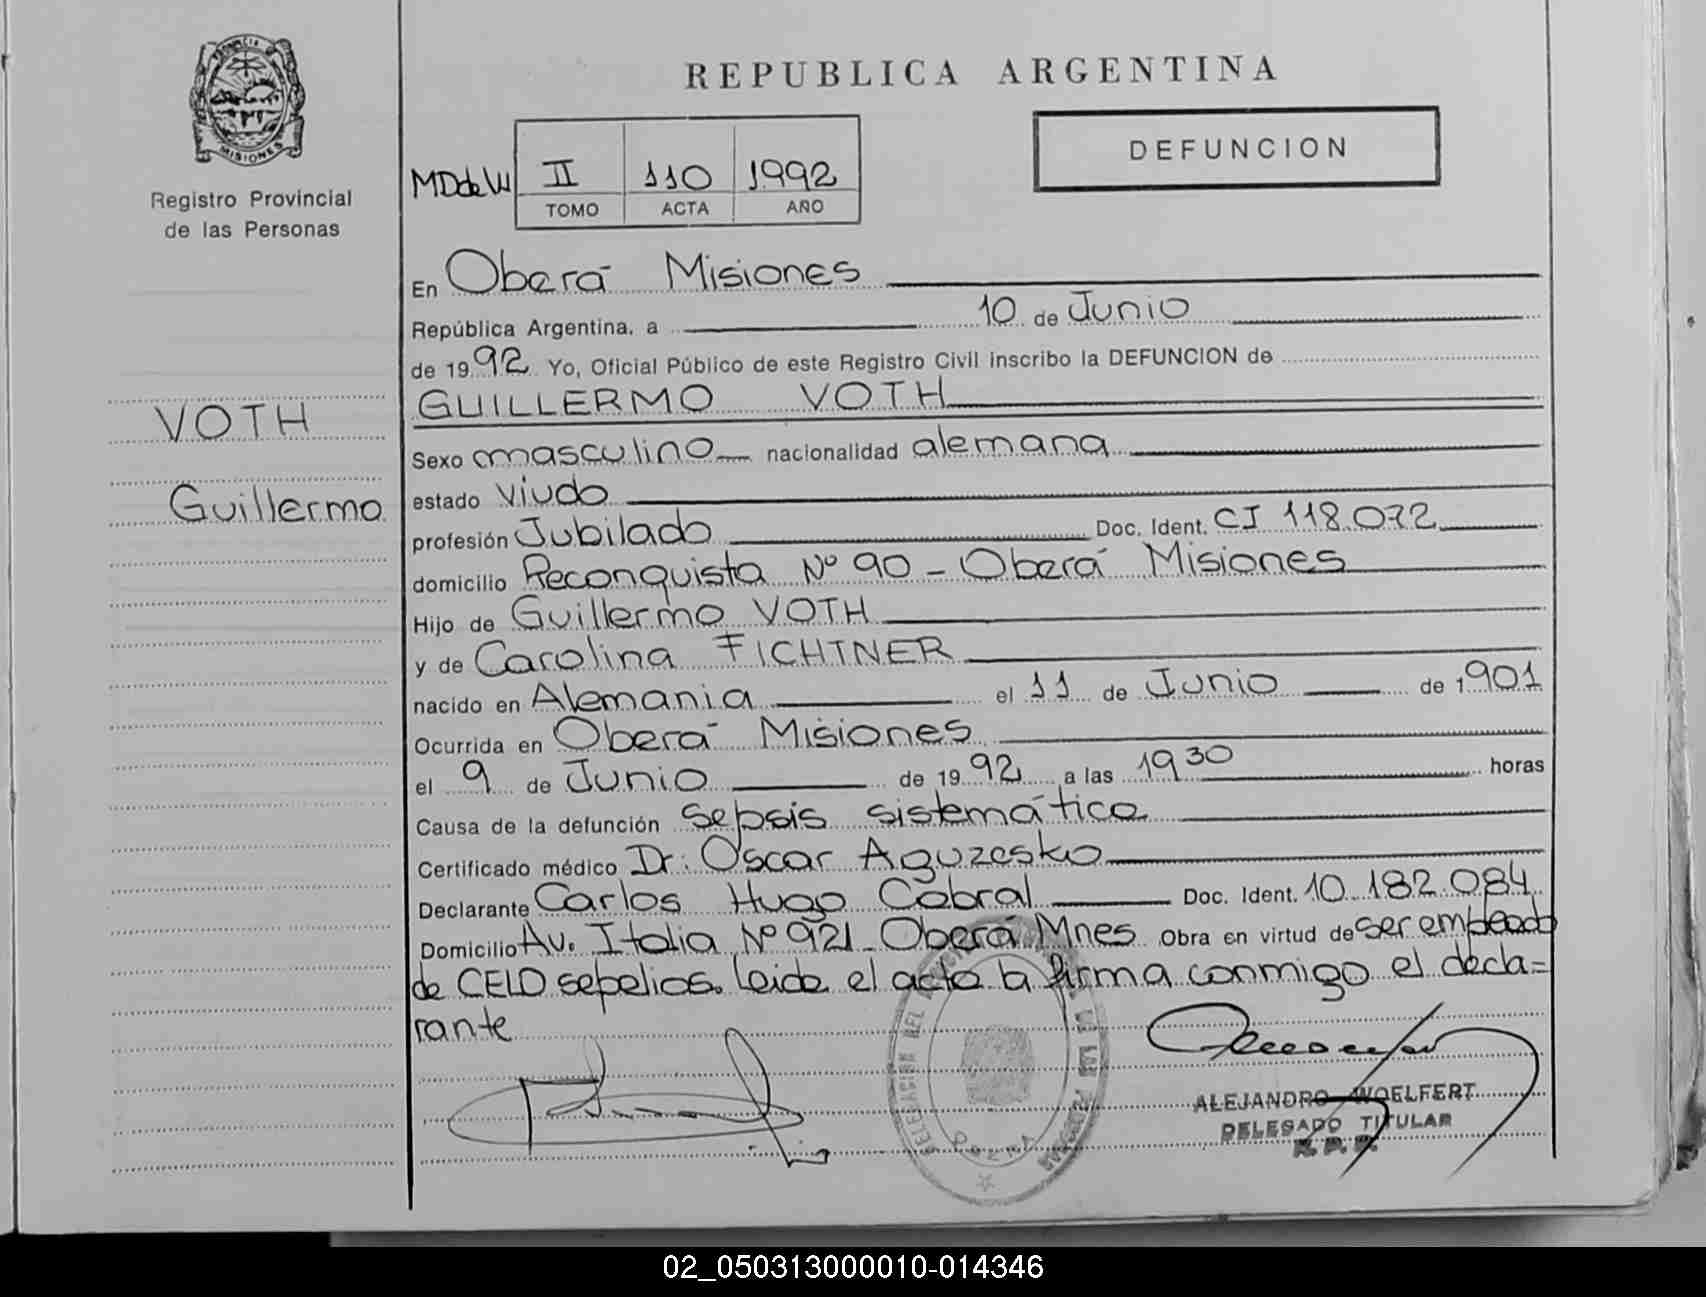 PROVINCIA DE
MISIONES
Registro Provincial
de las Personas
VOTH
Guillermo
REPUBLICA ARGENTINA
DEFUNCION
II 110 1992
TOMO ACTA AÑO
En Oberá Misiones
República Argentina, a 10 de Junio
de 1992 Yo, Oficial Público de este Registro Civil inscribo la DEFUNCION de
GUILLERMO VOTH
Sexo masculino nacionalidad alemana
estado viudo
profesión Jubilado Doc. Ident. CI 118.072
domicilio Reconquista Nº 90 - Oberá Misiones
Hijo de Guillermo VOTH
y de Carolina FICHTNER
nacido en Alemania el 11 de Junio de 1901
Ocurrida en Oberá Misiones
el 9 de Junio de 1992 a las 19 30 horas
Causa de la defunción sepsis sistemática
Certificado médico Dr: Oscar Aguzesko
Declarante Carlos Hugo Cabral Doc. Ident. 10.182.084
Domicilio Av. Italia Nº 921 Oberá Mnes Obra en virtud de ser empleado
de CELO sepelios. Leida el acta la firma conmigo el decla=
rante
ALEJANDRO WOELFERT
DELEGADO TITULAR
R.P.P.
02_050313000010-014346